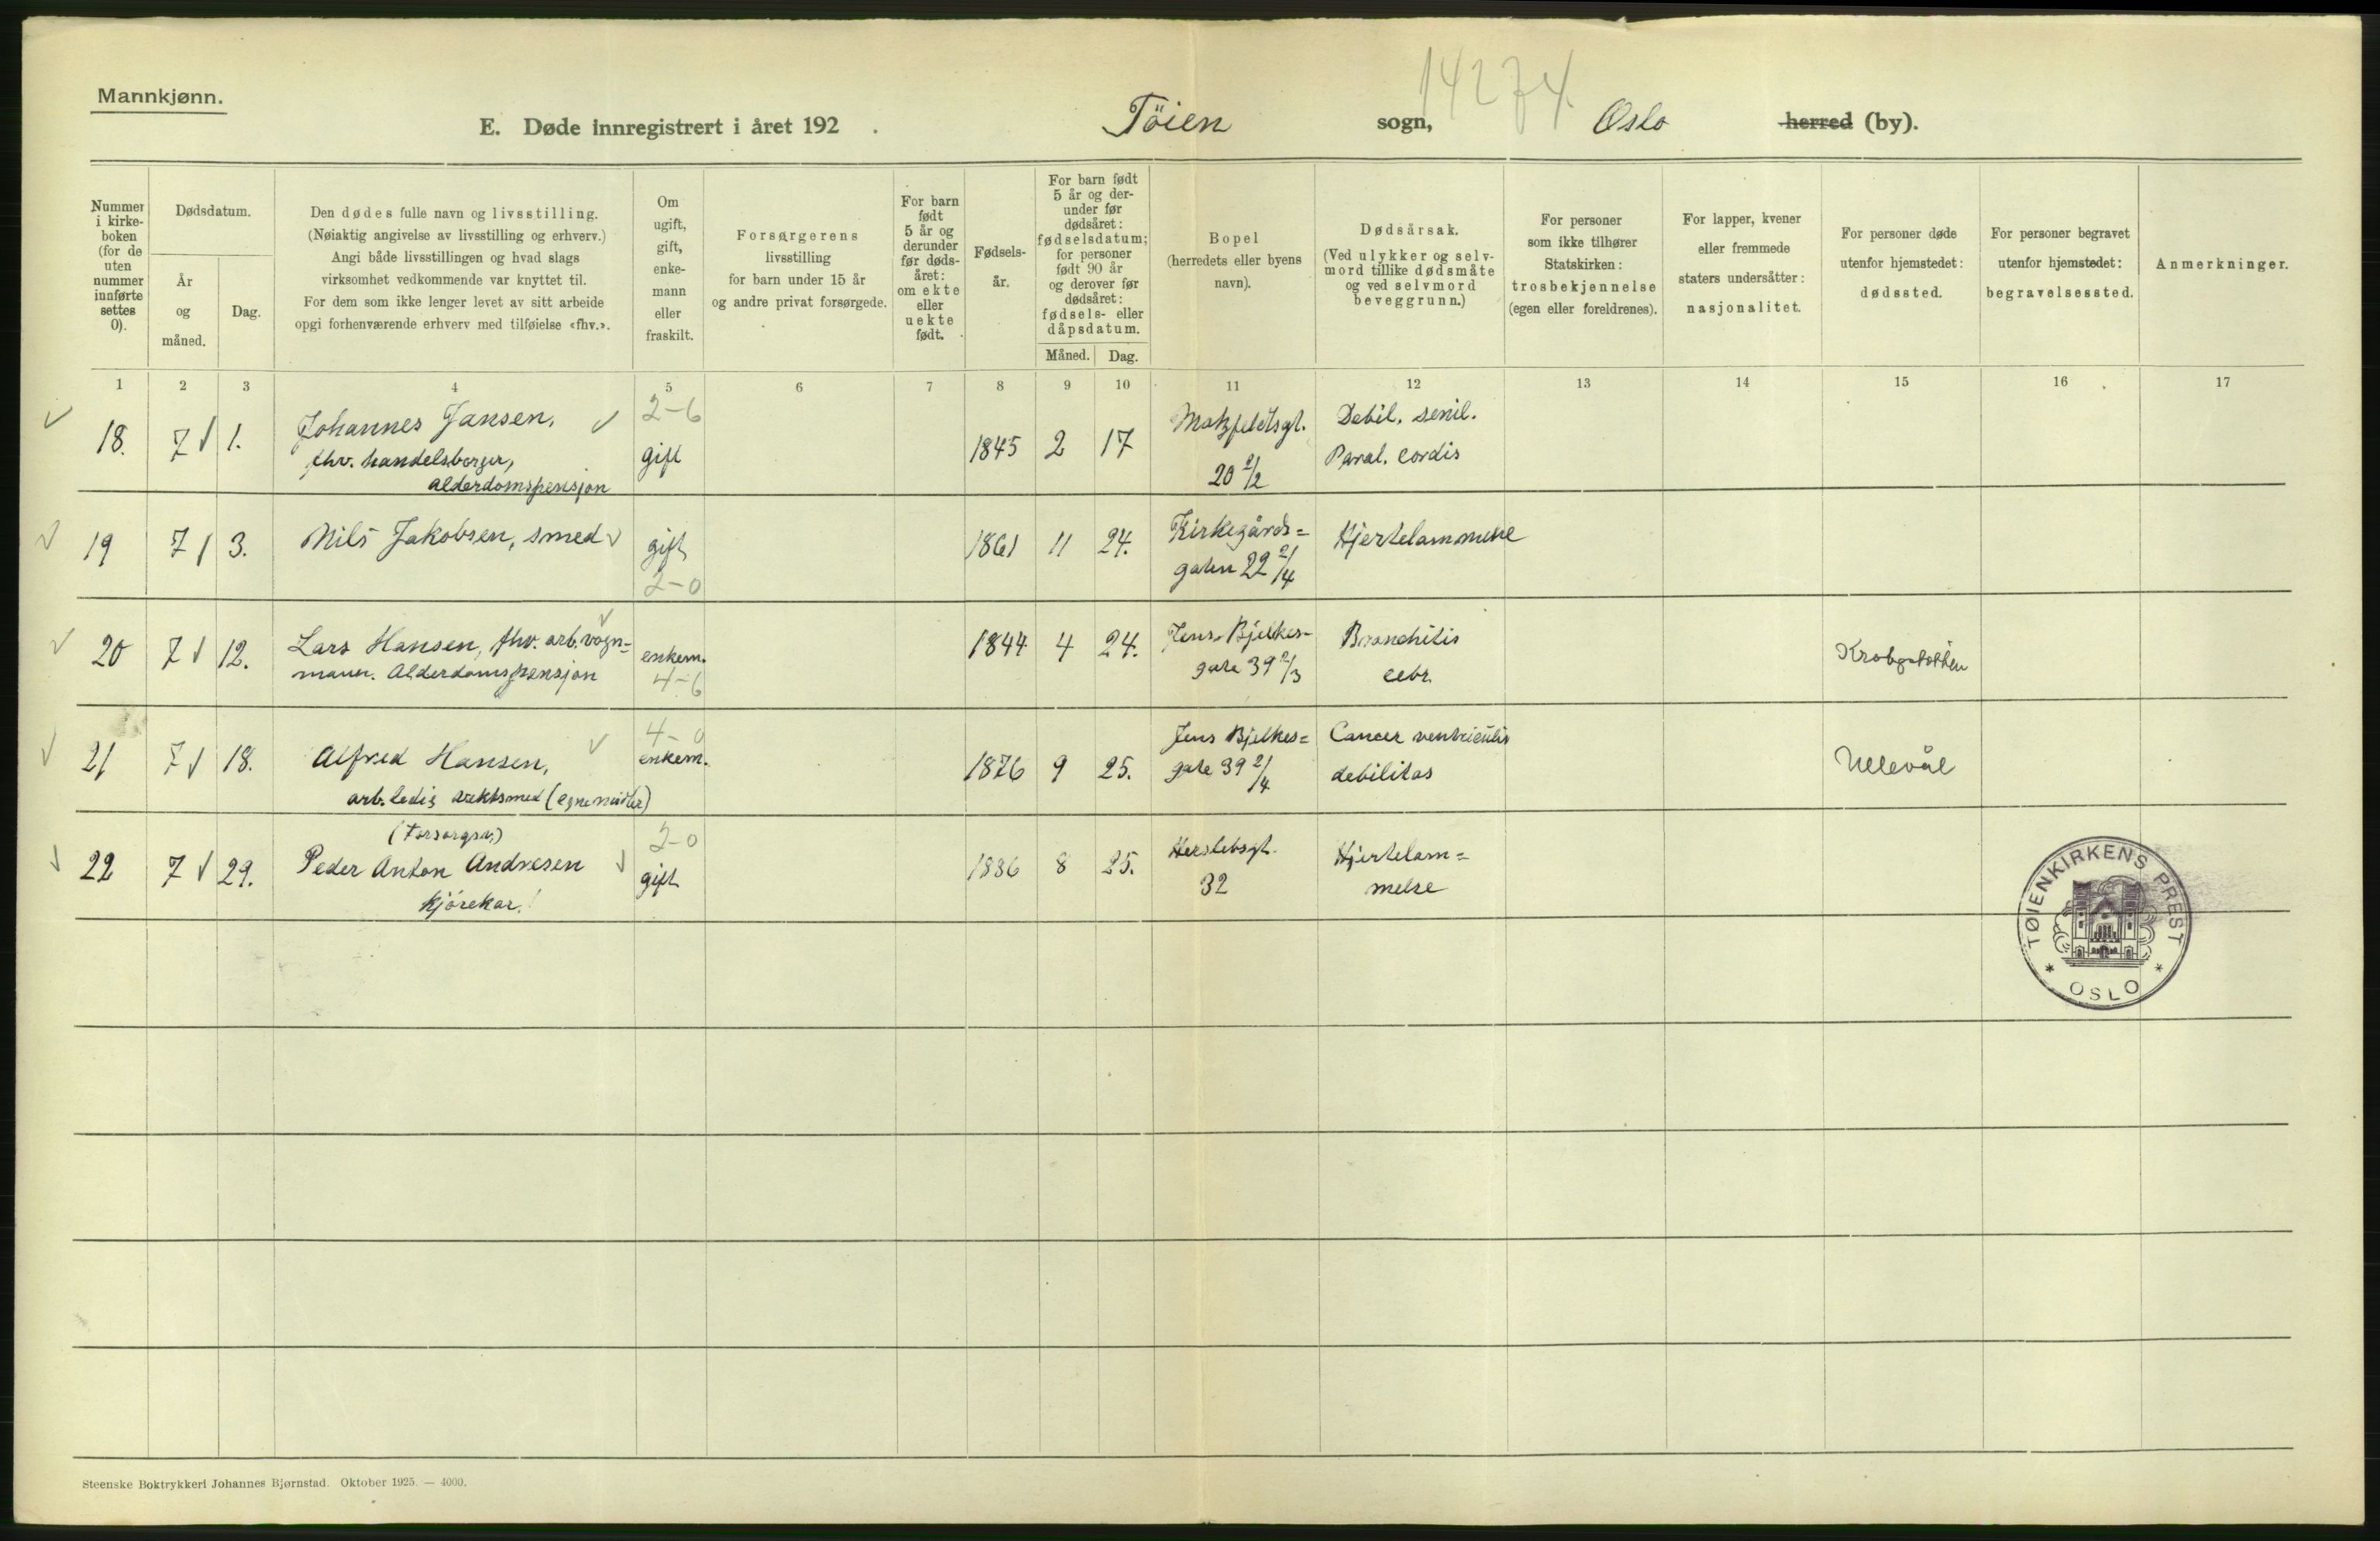 14274.
Mannkjønn.
E. Døde innregistrert i året 192 . Töien sogn, Oslo herred (by).
Nummer i kirke- boken (for de uten nummer innførte settes 0).
Dødsdatum.
År og måned.
Dag.
Den dødes fulle navn og livsstilling.
(Nøiaktig angivelse av livsstilling og erhverv.)
Angi både livsstillingen og hvad slags
virksomhet vedkommende var knyttet til.
For dem som ikke lenger levet av sitt arbeide
opgi forhenværende erhverv med tilføielse «fhv.».
Om ugift, gift, enke- mann eller fraskilt.
Forsørgerens
livsstilling
for barn under 15 år
og andre privat forsørgede.
For barn født 5 år og derunder før døds- året: om ekte eller uekte født.
Fødsels- år.
For barn født 5 år og der- under før dødsåret: fødselsdatum; for personer født 90 år og derover før dødsåret: fødsels- eller dåpsdatum.
Måned. Dag.
Bopel
(herredets eller byens
navn).
Dødsårsak.
(Ved ulykker og selv-
mord tillike dødsmåte
og ved selvmord
beveggrunn.)
For personer
som ikke tilhører
Statskirken:
trosbekjennelse
(egen eller foreldrenes).
For lapper, kvener
eller fremmede
staters undersåtter:
nasjonalitet.
For personer døde
utenfor hjemstedet:
dødssted.
For personer begravet
utenfor hjemstedet:
begravelsessted.
Anmerkninger.
1 2 3 4 5 6 7 8 9 10 11 12 13 14 15 16 17
2-6
18. 7 1. Johannes Jansen, gift 1845 2 17 Motzfeldtsgt. Debil. senil.
fhv. handelsborger, 20 2/2 Paral. cordis
alderdomspensjon
19 7 3. Nils Jakobsen, smed gift 1861 11 24. Kirkegårds= Hjertelammelse
2-0 gaten 22 2/4
20 7 12. Lars Hansen, fhv. arb. vogn= enkem. 1844 4 24. Jens Bjelkes- Bronchitis
mann. Alderdomspensjon 4-6 gate 39 2/3 Krohgstøtten
4-0
21 7 18. Alfred Hansen, enkem. 1876 9 25. Jens Bjelkes= Cancer ventriculis Ullevål
arb. ledig (egne midler) gate 39 2/4 debilitas
(Forsorgsv.) 2-0
22 7 29. Peder Anton Andresen gift 1836 8 25. Herslebsgt. Hjertelam=
kjörekar. 32 melse
TØIENKIRKENS PREST
* OSLO *
Steenske Boktrykkeri Johannes Bjørnstad. Oktober 1925. — 4000.